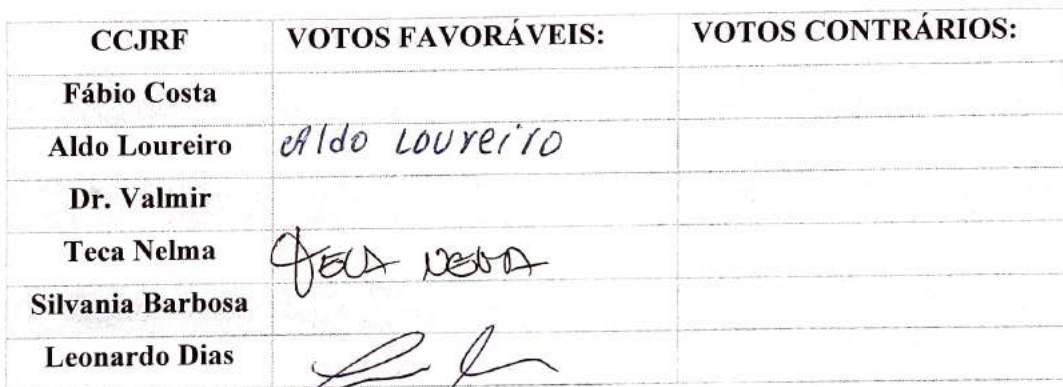 CCJRF VOTOS FAVORÁVEIS: VOTOS CONTRÁRIOS:
Fábio Costa
Aldo Loureiro Aldo Loureiro
Dr. Valmir
Teca Nelma Teca Nelma
Silvania Barbosa
Leonardo Dias